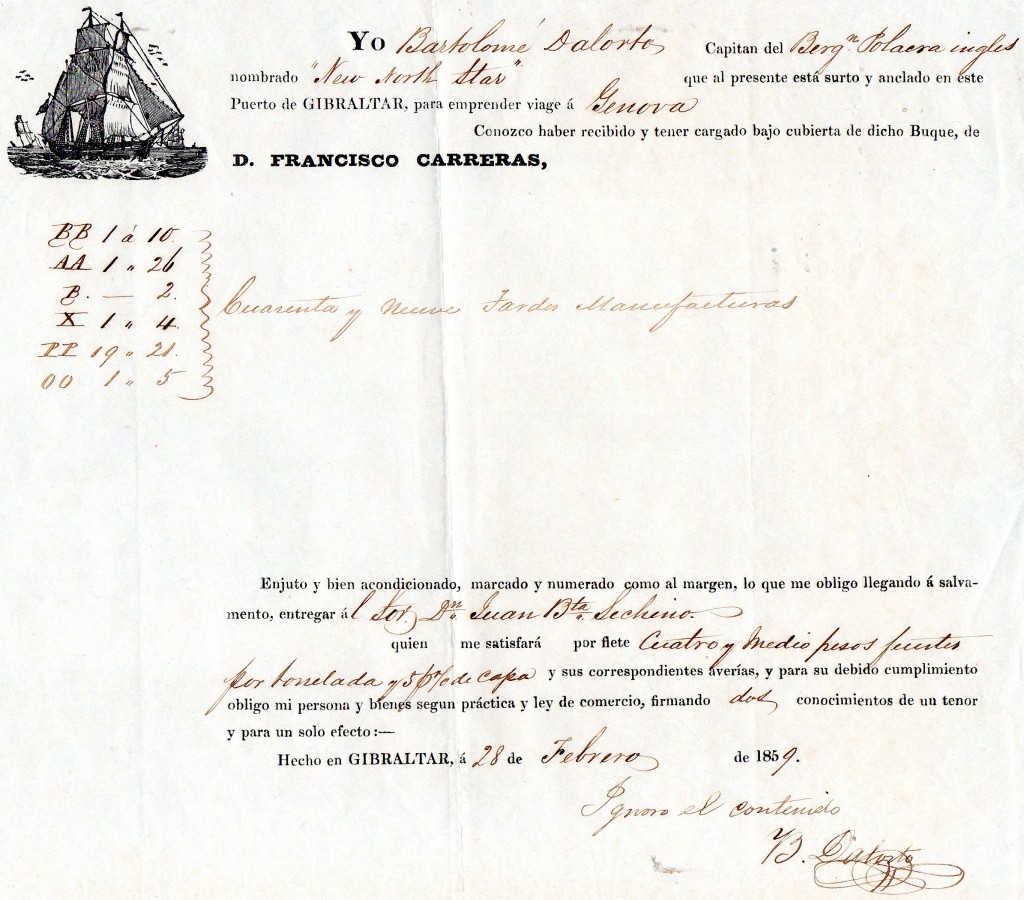 Yo Bartolomé Dalorto Capitan del Bergn Polacra ingles
nombrado "New North Star" que al presente está surto y anclado en este
Puerto de GIBRALTAR, para emprender viage á Genova
Conozco haber recibido y tener cargado bajo cubierta de dicho Buque, de
D. FRANCISCO CARRERAS,
BB 1 á 10.
AA 1 " 26
B. — 2.
X 1 " 4.
PP 19 " 21.
OO 1 " 5
Cuarenta y Nueve Fardos Manufacturas
Enjuto y bien acondicionado, marcado y numerado como al margen, lo que me obligo llegando á salva-
mento, entregar ál Sor. Dn Juan Bta Sechino.
quien me satisfará por flete Cuatro y Medio pesos fuertes
por tonelada y 5 p% de capa y sus correspondientes averías, y para su debido cumplimiento
obligo mi persona y bienes segun práctica y ley de comercio, firmando dos conocimientos de un tenor
y para un solo efecto:—
Hecho en GIBRALTAR, á 28 de Febrero de 1859.
Ignoro el contenido
B. Dalorto